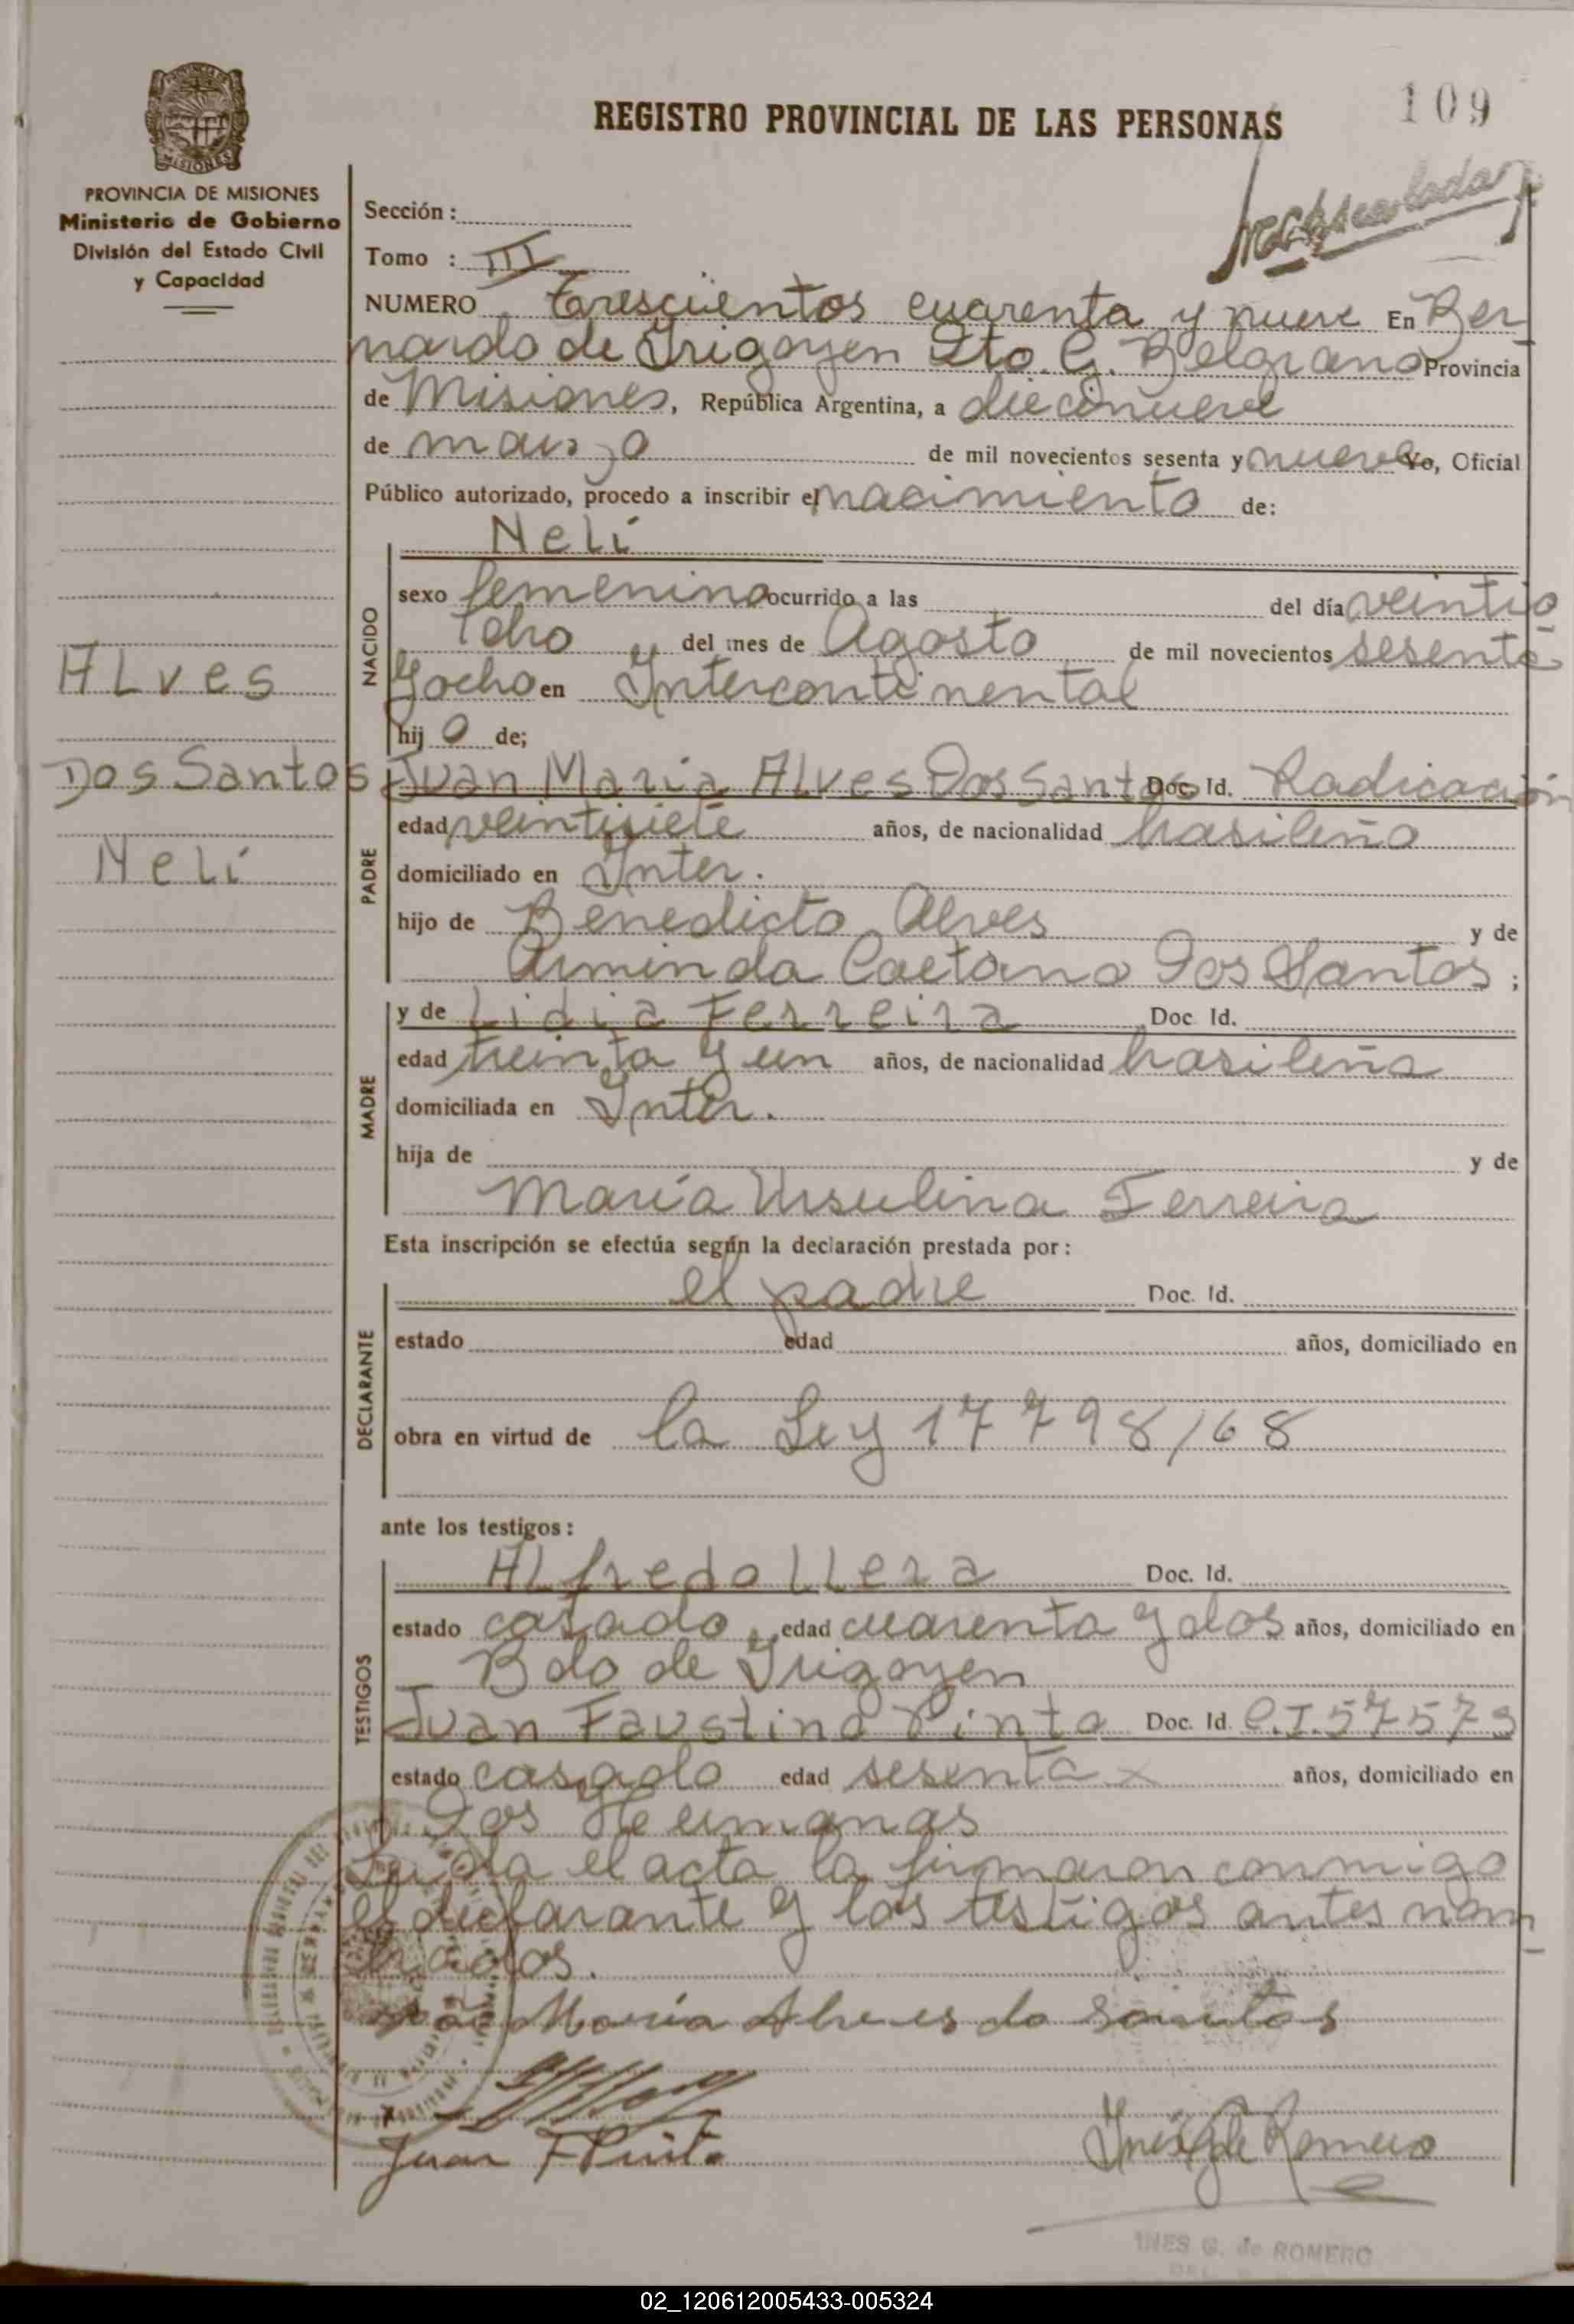 109
REGISTRO PROVINCIAL DE LAS PERSONAS
PROVINCIA DE MISIONES
Ministerio de Gobierno
División del Estado Civil
y Capacidad
Sección:
Tomo : III
NUMERO Trescientos cuarenta y nueve En Ber-
nardo de Irigoyen Dto. G. Belgrano Provincia
de Misiones, República Argentina, a diecinueve
de marzo de mil novecientos sesenta y nueve Yo, Oficial
Público autorizado, procedo a inscribir el nacimiento de:
NACIDO
Neli
sexo femenino ocurrido a las del día veintio
cho del mes de Agosto de mil novecientos sesenta
y ocho en Intercontinental
hij o de;
ALves
Dos Santos
Neli
PADRE
Juan María ALves Dos Santos Doc. Id. Radicación
edad veintisiete años, de nacionalidad brasileña
domiciliado en Inter.
hijo de Benedicto Alves y de
Arminda Caetano Dos Santos ;
MADRE
y de Lidia Ferreira Doc. Id.
edad treinta y un años, de nacionalidad brasileña
domiciliada en Inter.
hija de y de
María Ursulina Ferreira
Esta inscripción se efectúa según la declaración prestada por:
DECLARANTE
el padre Doc. Id.
estado edad años, domiciliado en
obra en virtud de la Ley 17798/68
ante los testigos:
TESTIGOS
ALfredo LLera Doc. Id.
estado casado edad cuarenta y dos años, domiciliado en
Bdo de Irigoyen
Juan Faustino Pinto Doc. Id. C.I. 57573
estado casado edad sesenta x años, domiciliado en
Dos Hermanas
Leída el acta la firmaron conmigo
el declarante y los testigos antes nom-
brados.
María Alves do santos
Juan F Pinto
Inés G de Romero
INES G. de ROMERO
02_120612005433-005324